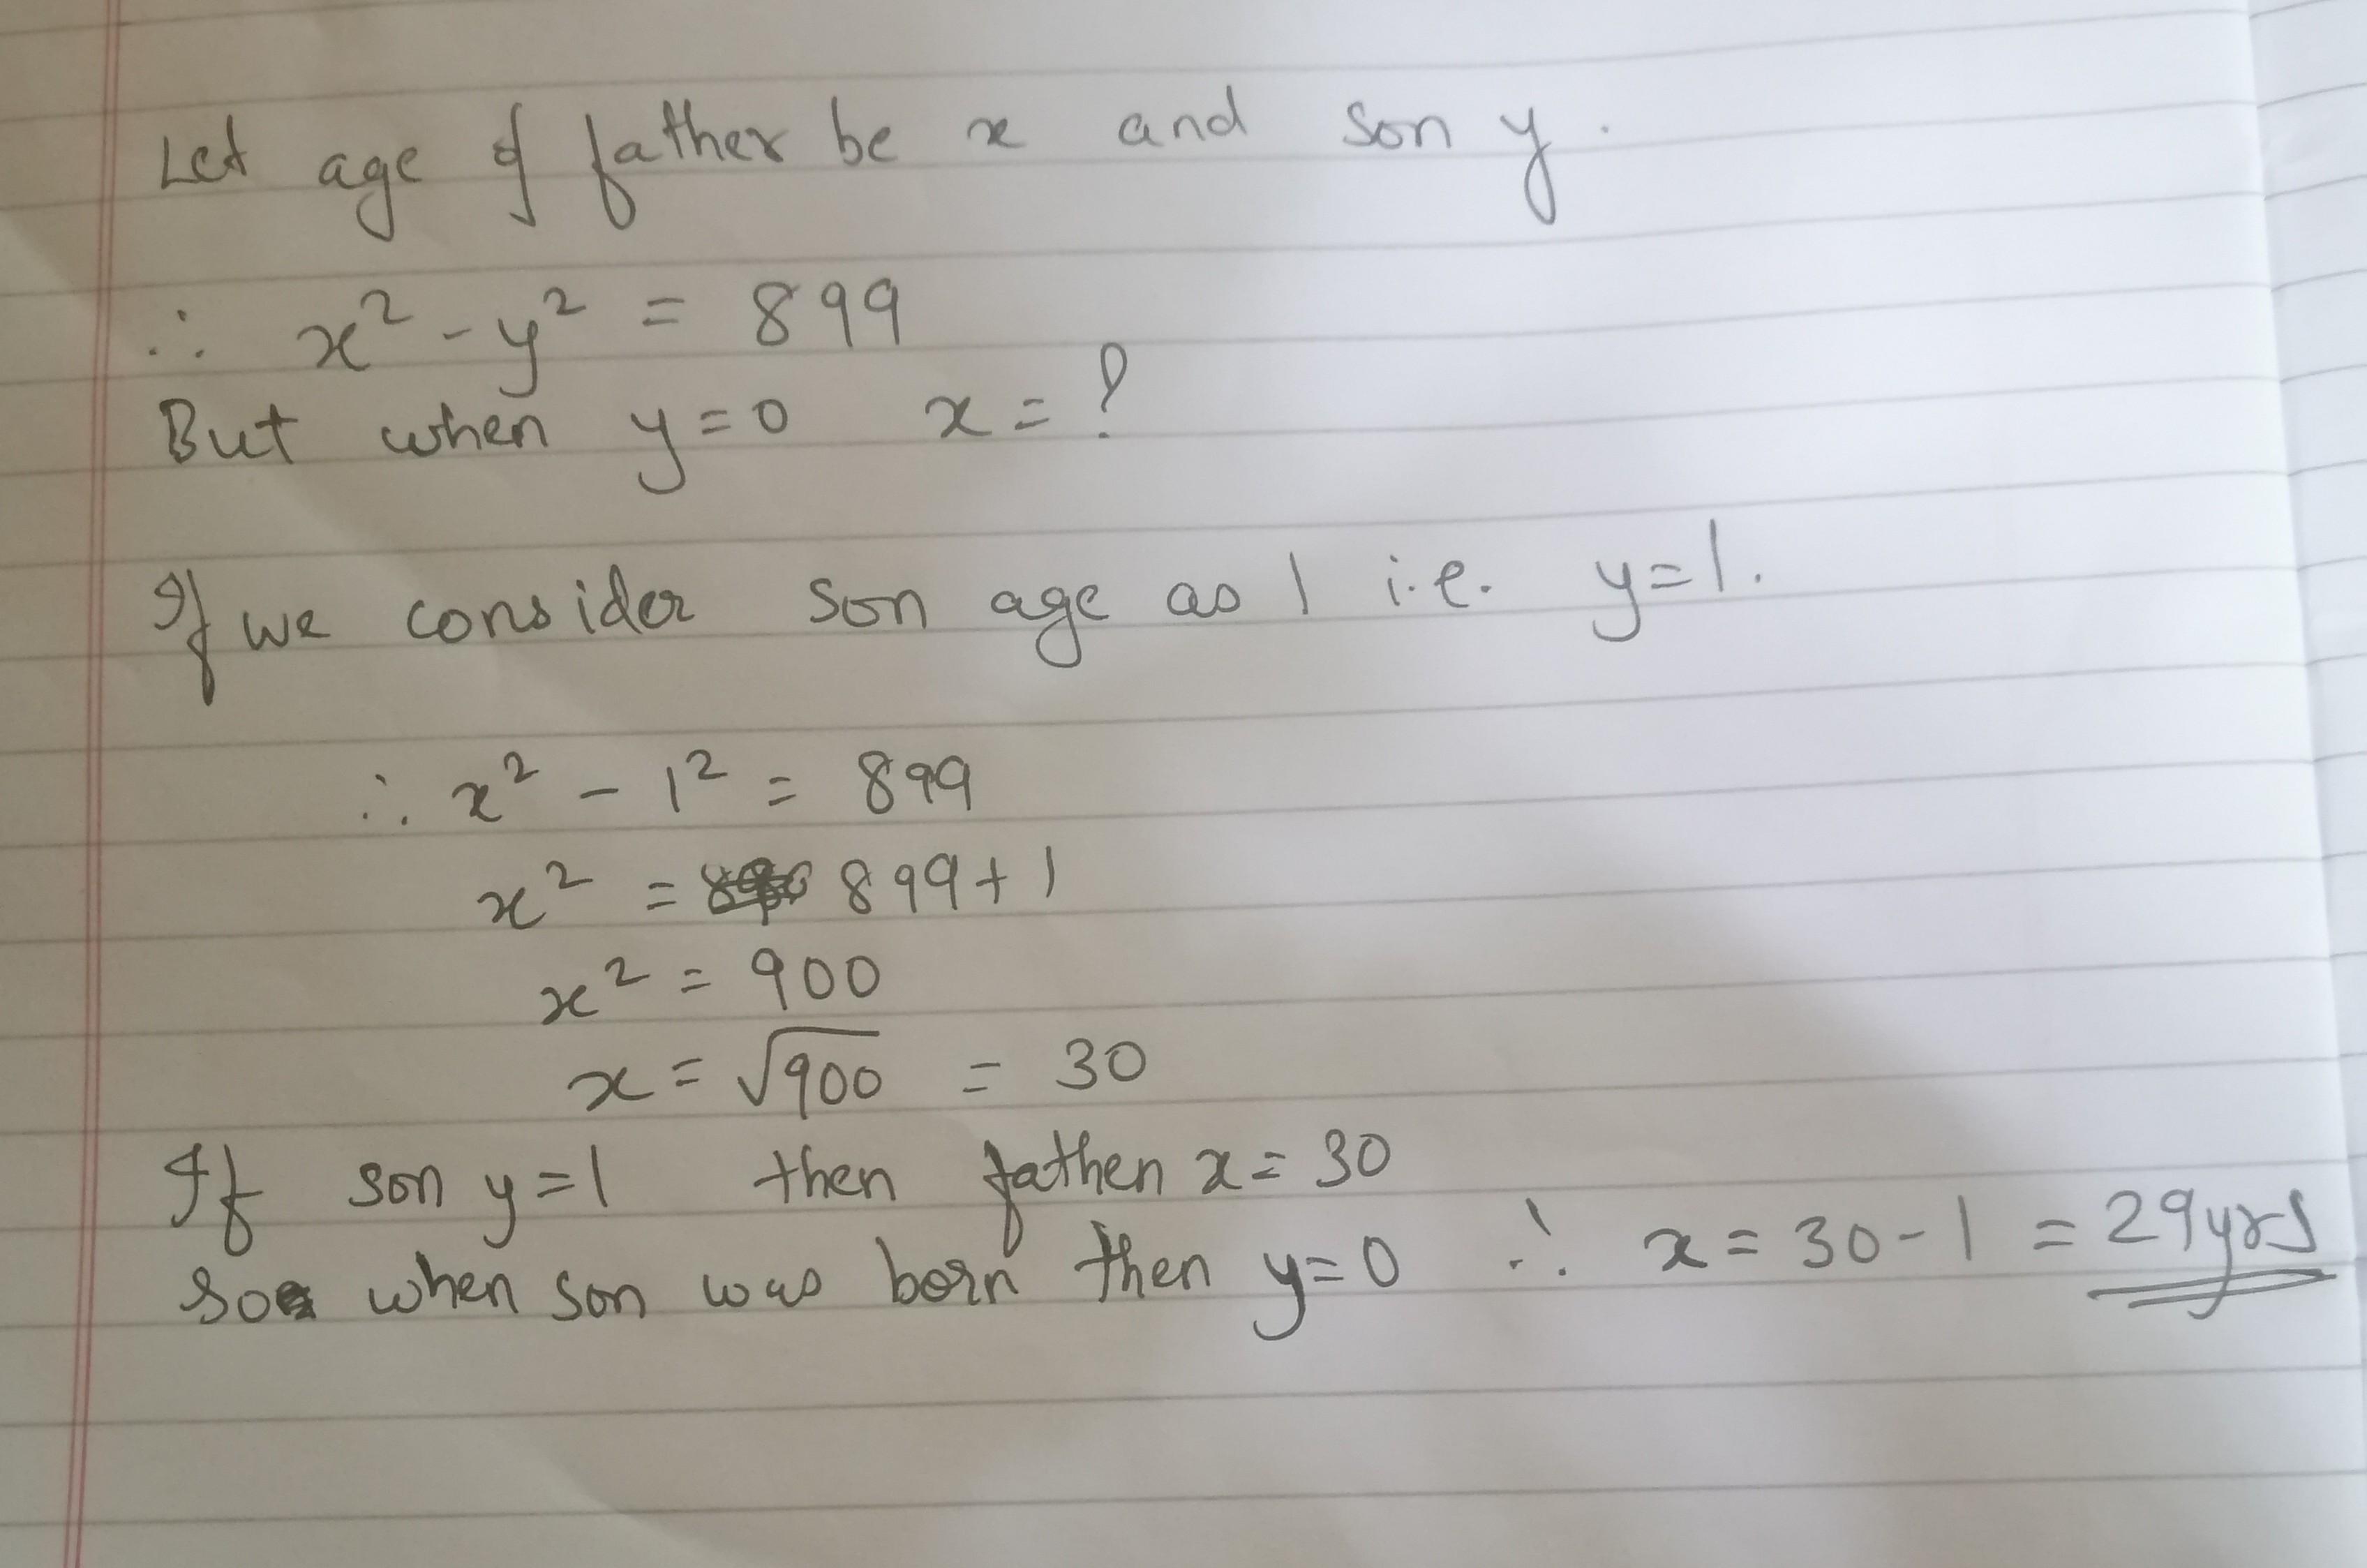 Let age of father be x and son y.
∴ x² - y² = 899
But when y=0 x=?
If we consider son age as 1 i.e. y=1.
∴ x² - 1² = 899
x² = 899+1
x² = 900
x = √900 = 30
If son y=1 then father x=30
So when son was born then y=0 ∴ x = 30-1 = 29yrs